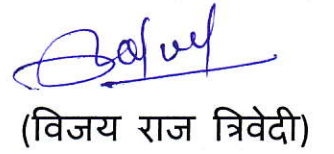 (विजय राज त्रिवेदी)